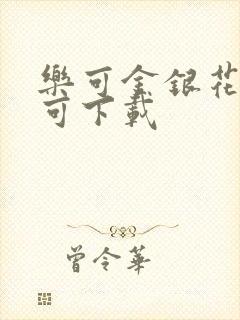 樂可金銀花
可下載
曾令華